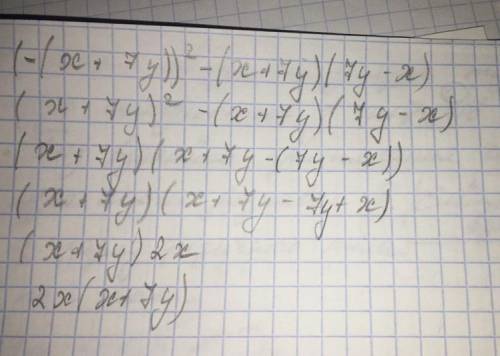 (-(x + 7y))² - (x + 7y)(7y - x)
(x + 7y)² - (x + 7y)(7y - x)
(x + 7y)(x + 7y - (7y - x))
(x + 7y)(x + 7y - 7y + x)
(x + 7y) 2x
2x(x + 7y)